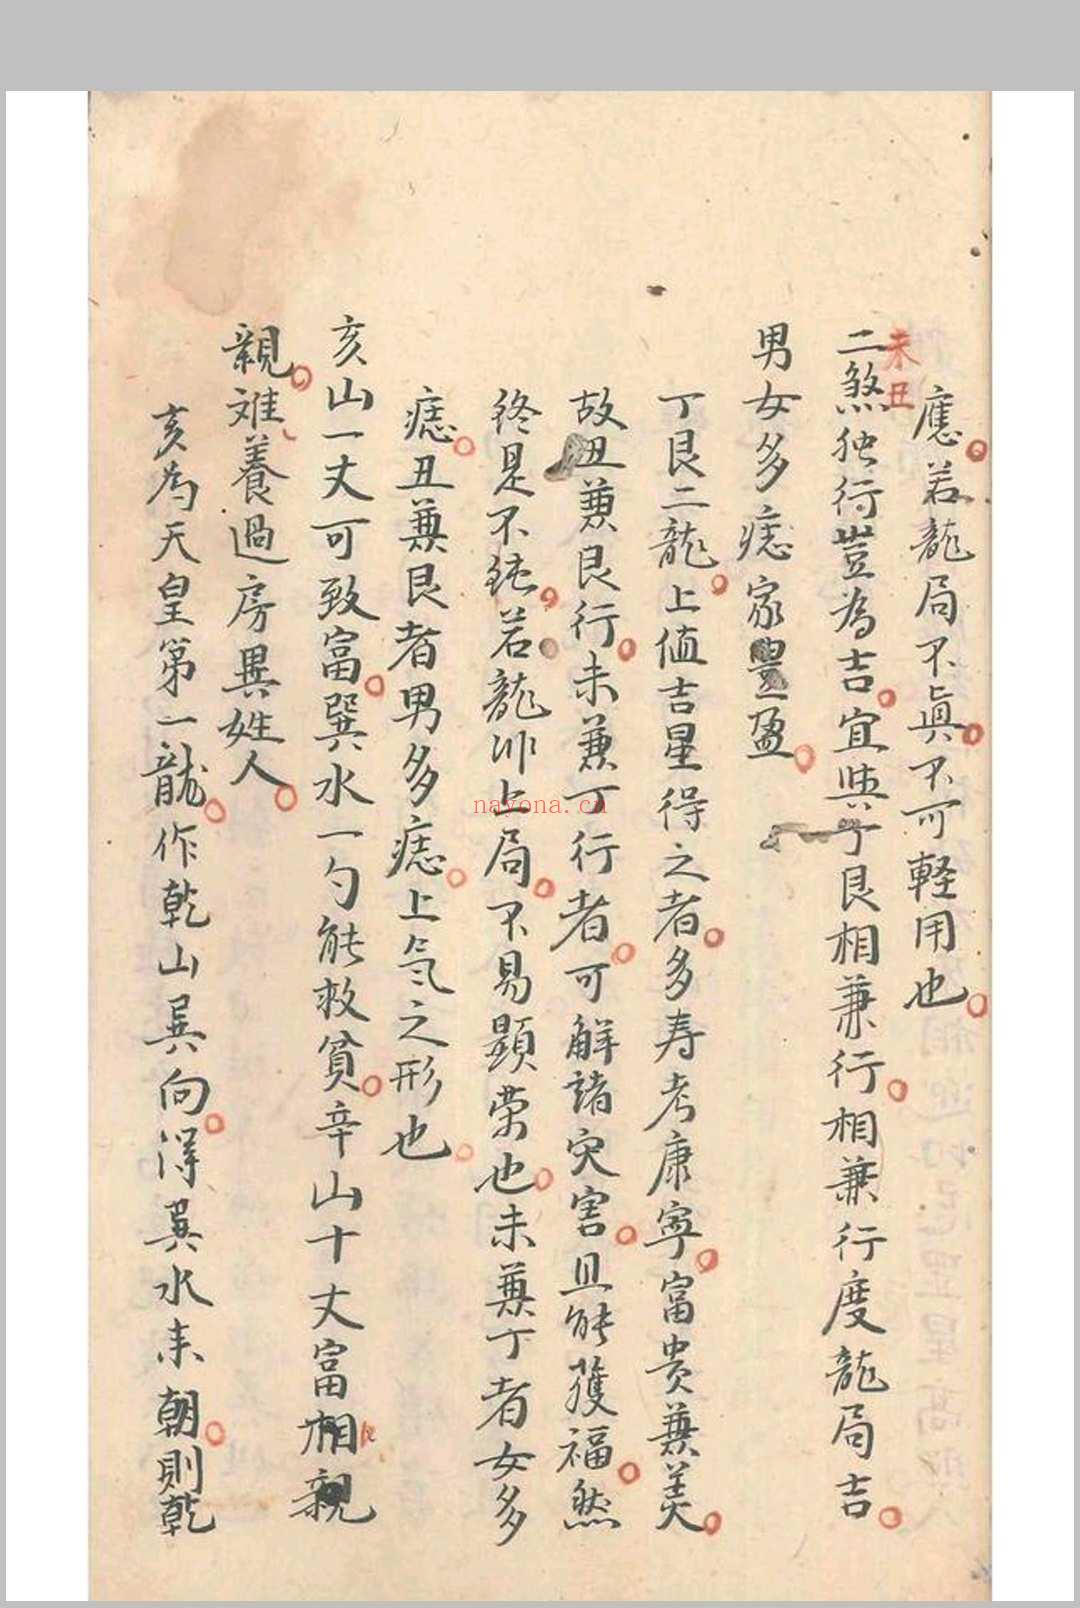 應若龍局不真不可軽用也
未丑
二煞独行豈為吉宜與丁艮相兼行相兼行度龍局吉
男女多痣家豊盈
丁艮二龍上值吉星得之者多寿考康寧富贵兼美
故丑兼艮行未兼丁行者可解諸灾害且能獲福然
終是不純若龍非上局不易顯荣也未兼丁者女多
痣丑兼艮者男多痣上氣之形也
亥山一丈可致富巽水一勺能救貧辛山十丈富相親
親难養過房異姓人
亥為天皇第一龍作乾山巽向得巽水来朝則乾
nayona.cn